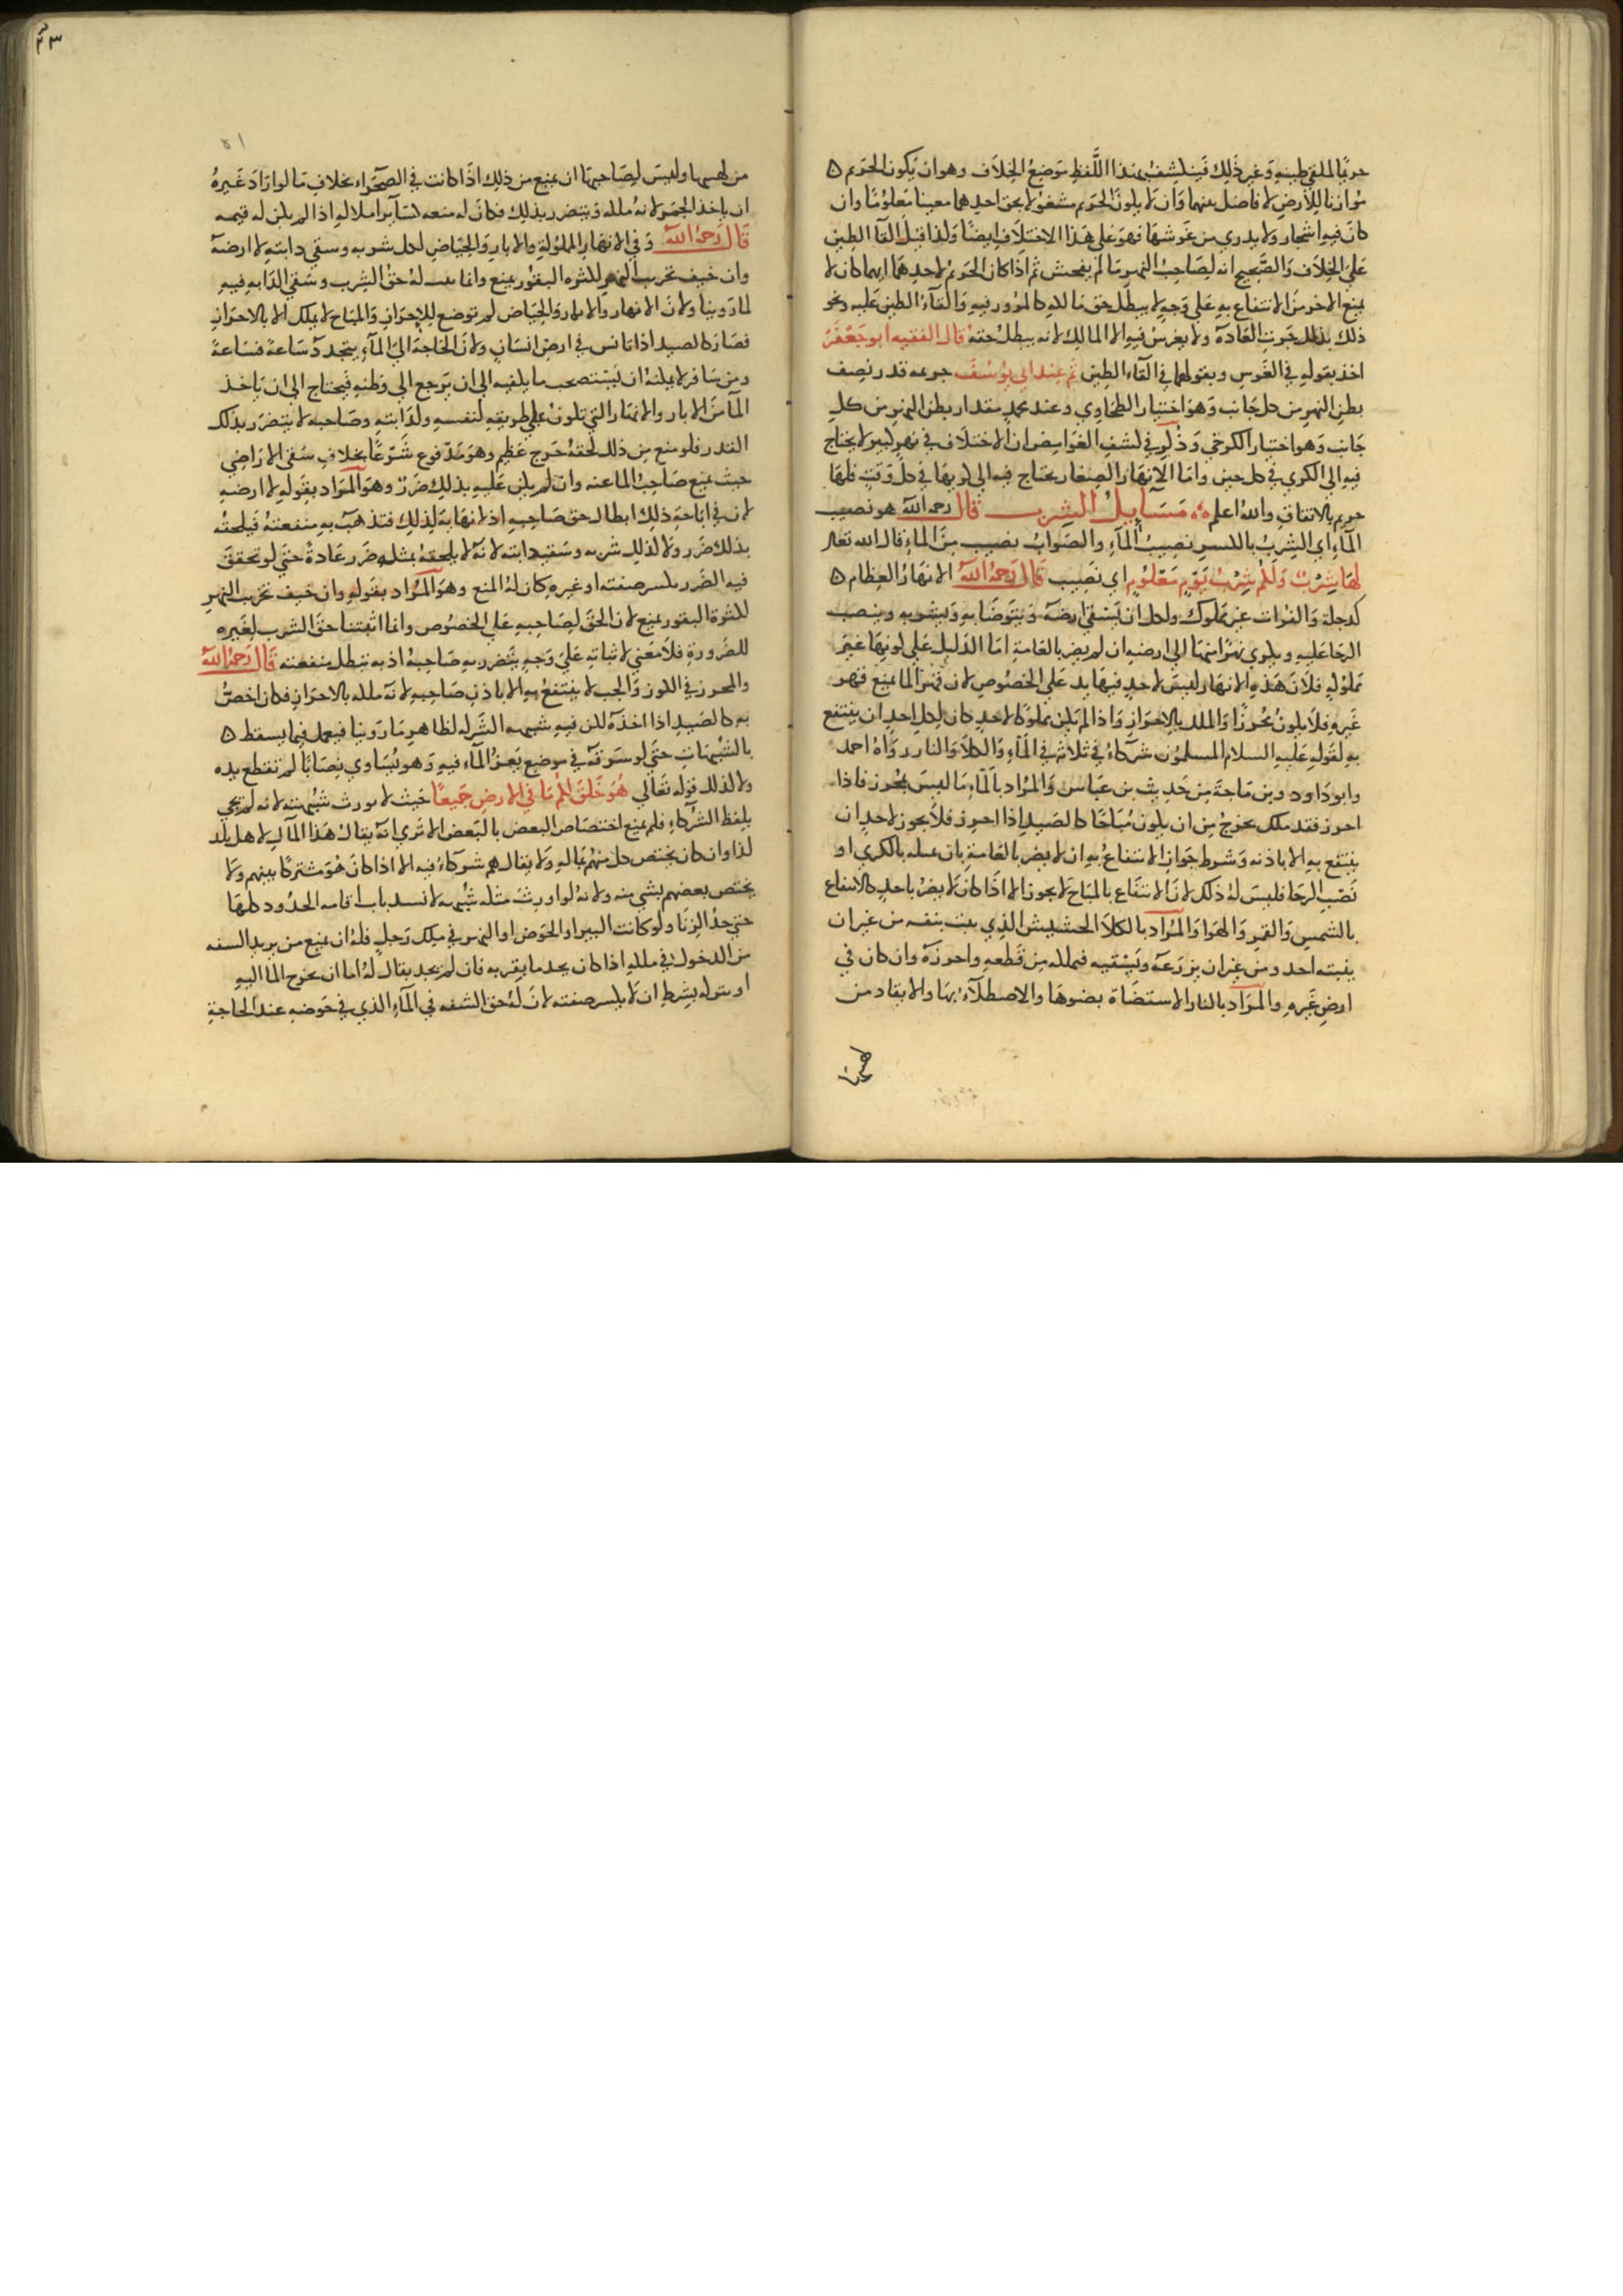 حريمًا للملقي طينه وغير ذلك فينكشف بهذا اللفظ موضع الخلاف وهو ان يكون الحريم
موازنا للأرض لا فاصل بينهما وان لا يكون الحريم مشغولا بحق احدهما معينا معلومًا وان
كان فيه اشجار ولا يدري من غرسها فهو على هذا الاختلاف ايضًا ولذا قيل القا الطين
على الخلاف والصحيح انه لصاحب النهر ما لم يفحش ثم اذا كان الحريم لاحدهما ايهما كان لا
يمنع الاخر من الانتفاع به على وجه لا يبطل حق مالكه كالمرور فيه والقاء الطين عليه ونحو
ذلك بذلك جرت العادة ولا يغرس فيه الا المالك لانه يبطل حقه قال الفقيه ابو جعفر
اخذ بقوله في الغرس وبقولهما في القاء الطين ثم عند ابي يوسف حريمه قدر نصف
بطن النهر من كل جانب وهو اختيار الطحاوي وعند محمد مقدار بطن النهر من كل
جانب وهو اختيار الكرخي وذكر في كشف الغوامض ان الاختلاف في نهر كبير لا يحتاج
فيه الى الكري في كل حين واما الانهار الصغار يحتاج فيه الى كريها في كل وقت فلها
حريم بالاتفاق والله اعلم مسايل الشرب قال رحمه الله هو نصيب
الماء اي الشرب بالكسر نصيب الماء والصواب نصيب من الماء قال الله تعالى
لها شرب ولكم شرب يوم معلوم اي نصيب قال رحمه الله الانهار العظام
كدجلة والفرات غير مملوك ولكل ان يسقي ارضه ويتوضا به ويشربه وينصب
الرحا عليه ويكري نهرًا منها الى ارضه ان لم يضر بالعامة اما الدليل على كونها غير
مملوكة فلان هذه الانهار ليس لاحد فيها يد على الخصوص لان قهر الما يمنع قهر
غيره فلا يكون محرزًا والملك بالاحراز واذا لم يكن مملوكا لاحد كان لكل احد ان ينتفع
به لقوله عليه السلام المسلمون شركاء في ثلاثة في الماء والكلا والنار رواه احمد
وابو داود وبن ماجة من حديث بن عباس والمراد بالماء ما ليس بمحرز فاذا
احرز فقد ملك يخرج من ان يكون مباحًا كالصيد اذا احرز فلا يجوز لاحد ان
ينتفع به الا باذنه وشرط جواز الانتفاع به ان لا يضر بالعامة بان عمله بالكري او
نصب الرحا فليس له ذلك لان الانتفاع بالمباح لا يجوز الا اذا كان لا يضر باحد كالانتفاع
بالشمس والقمر والهوا والمراد بالكلا الحشيش الذي ينبت بنفسه من غير ان
ينبته احد ومن غير ان يزرعه ويسقيه فيملكه من قطعه واحرزه وان كان في
ارض غيره والمراد بالنار الاستضاة بضوها والاصطلاء بها والايقاد من
لهبها
من لهبها وليس لصاحبها ان يمنع من ذلك اذا كانت في الصحراء بخلاف ما لو اراد غيره
ان ياخذ الجمر لانه ملكه ويتضرر بذلك فكان له منعه كساير املاكه اذا لم يكن له قيمه
قال رحمه الله وفي الانهار المملوكة والابار والحياض لكل شربه وسقي دابته لا ارضه
وان خيف تخريب النهر لكثره البقور يمنع وانما له حق الشرب وسقي الدابه فيه
لما روينا ولان الانهار والابار والحياض لم توضع للاحراز والمباح لا يملك الا بالاحراز
فصار كالصيد اذا تكانس في ارض انسان ولان الحاجة الى الماء يتجدد ساعة فساعة
ومن سافر لا يمكنه ان يستصحب ما يكفيه الى ان يرجع الى وطنه فيحتاج الى ان ياخذ
الما من الابار والانهار التي تكون على طريقه لنفسه ولدابته وصاحبه لا يتضرر بذلك
القدر فلو منع من ذلك لحقه حرج عظيم وهو مدفوع شرعًا بخلاف سقي الاراضي
حيث يمنع صاحب الما عنه وان لم يكن عليه بذلك ضرر وهو المراد بقوله لا ارضه
لان في اباحة ذلك ابطال حق صاحبه اذ لا نهاية لذلك فتذهب به منفعته فيلحقه
بذلك ضرر ولا كذلك شربه وسقيه دابته لانه لا يلحقه بمثله ضرر عادة حتى لو تحقق
فيه الضرر بكسر ضفته او غيره كان له المنع وهو المراد بقوله وان خيف تخريب النهر
لكثرة البقور يمنع لان الحق لصاحبه على الخصوص وانما اثبتنا حق الشرب لغيره
للضرورة فلا معنى لاثباته على وجه يتضرر به صاحبه اذ به تبطل منفعته قال رحمه الله
والمحرز في الكوز والجب لا ينتفع به الا باذن صاحبه لانه ملكه بالاحراز فكان اخص
به كالصيد اذا اخذه لكن فيه شبهه الشركه لظاهر ما روينا فيعمل فيما يسقط
بالشبهات حتى لو سرقه في موضع يعز الماء فيه وهو يساوي نصابًا لم تقطع يده
ولا كذلك قوله تعالى هو خلق لكم ما في الارض جميعًا حيث لا يورث شبهته لانه لم يجي
بلفظ الشركاء فلم يمنع اختصاص البعض بالبعض الا ترى انه يقال هذا المال لاهل بلد
كذا وان كان يختص كل منهم بماله ولا يقال هم شركاء فيه الا اذا كان هو مشتركًا بينهم ولا
يختص بعضهم بشي منه ولانه لو اورث مثله شبهه لانسد باب اقامه الحدود كلها
حتى حد الزنا ولو كانت البير او الحوض او النهر في ملك رجل فله ان يمنع من يريد الشفه
من الدخول في ملكه اذا كان يجد ما يقربه فان لم يجد يقال له اما ان يخرج الما اليه
او يتركه بشرط ان لا يكسر ضفته لان له حق الشفه في الماء الذي في حوضه عند الحاجة